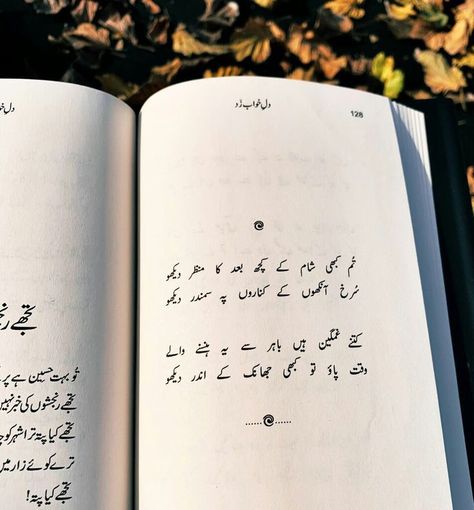 دلِ خواب زَد
128
تُم کبھی شام کے کچھ بعد کا منظر دیکھو
سُرخ آنکھوں کے کناروں پہ سمندر دیکھو
کتنے غمگین ہیں باہر سے یہ ہنسنے والے
وقت پاؤ تو کبھی جھانک کے اندر دیکھو
دلِ
تجھے
تُو بہت حسین ہے پر
تجھے رنجشوں کی خبر نہیں
تجھے کیا پتہ ترا شہر
ترے کوئے زار میں
تجھے کیا پتہ!